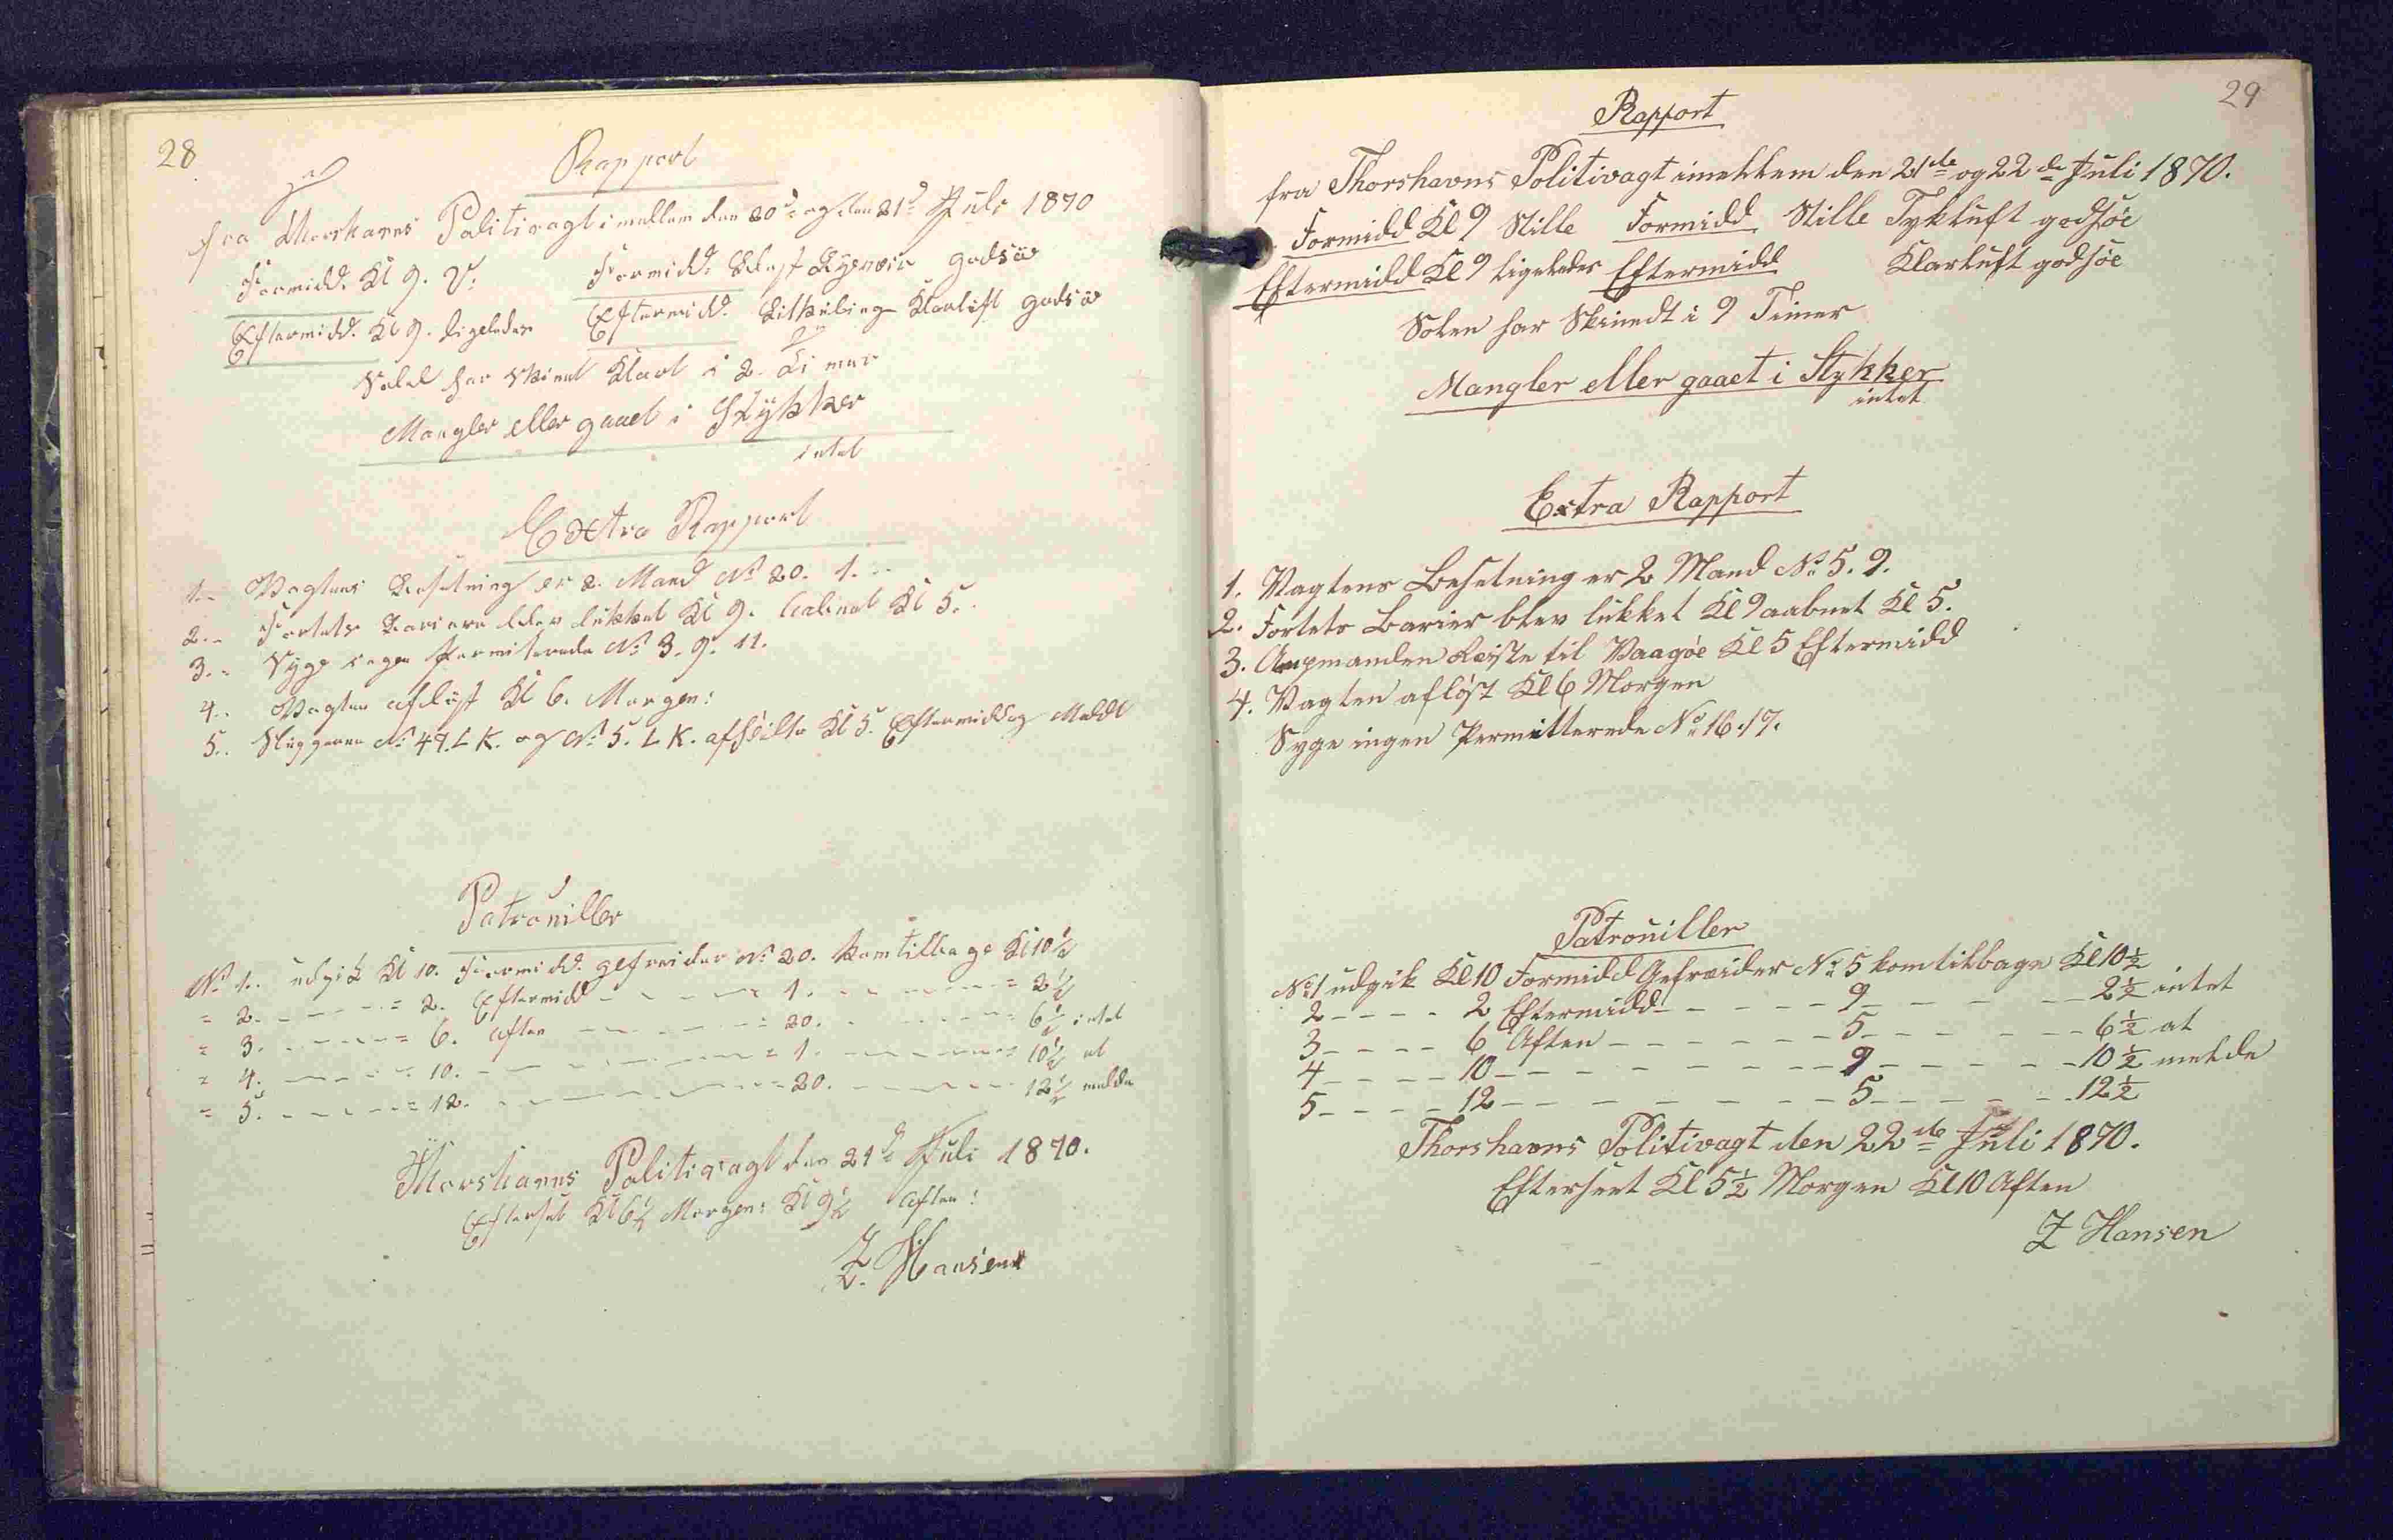 28
Rapport
fra Thorshavns Politivagt imellem den 20de og den 21de Juli 1870
Formidd. Kl 9. V. Formidd. Blest godsöe
Eftermidd. Kl 9. ligeledes Eftermidd. Klarluft godsöe
Solel har Skinnet Klart i 2 Timer
Mangler eller gaaet i Stÿkker
intet
Extra Rapport
1. Vagtens Besetning er 2. Mand No 20. 1.
2. Fortets Bariere blev lukket Kl 9. Aabnet Kl 5.
3. Syge ingen Permiterede No 3. 9. 11.
4. Vagten aflöst Kl 6. Morgen:
5. Slupperne No 47. L K. og No 5. L K. afseilte Kl 5. Eftermiddag
Patrouiller
No 1. udgik Kl 10. Formidd. gefreider No 20. kom tilbage Kl 10½
= 2. - - - = 2. Eftermidd - - - = 1. - - - = 2½
= 3. - - - = 6. Aften - - - = 20. - - - = 6½ intet
= 4. - - - = 10. - - - = 1. - - - = 10½ at
= 5. - - - = 12. - - - = 20. - - - 12½ melde
Thorshavns Politivagt den 21de Juli 1870.
Efterset Kl 6½ Morgen: Kl 9½ Aften:
Z. Hansen
29
Rapport
fra Thorshavns Politivagt imellem den 21de og 22de Juli 1870.
Formidd Kl 9 Stille Formidd Stille Tykluft godsöe
Eftermidd Kl 9 ligeledes Eftermidd Klarluft godsöe
Solen har Skinnedt i 9 Timer
Mangler eller gaaet i Stykker
intet
Extra Rapport
1. Vagtens Besetning er 2 Mand No 5. 9.
2. Fortets Barier blev lukket Kl 9 aabnet Kl 5.
3. Ampmanden Reiste til Vaagöe Kl 5 Eftermidd
4. Vagten aflöst Kl 6 Morgen
Syge ingen Permitterede No 16. 17.
Patrouiller
No 1 udgik Kl 10 Formidd Gefreider No 5 kom tilbage Kl 10½
2 - - - - 2 Eftermidd - - - - 9 - - - - 2½ intet
3 - - - - 6 Aften - - - - - 5 - - - - 6½ at
4 - - - - 10 - - - - - - 9 - - - - 10½ melde
5 - - - - 12 - - - - - - 5 - - - - 12½
Thorshavns Politivagt den 22de Juli 1870.
Efterseet Kl 5½ Morgen Kl 10 Aften
Z Hansen